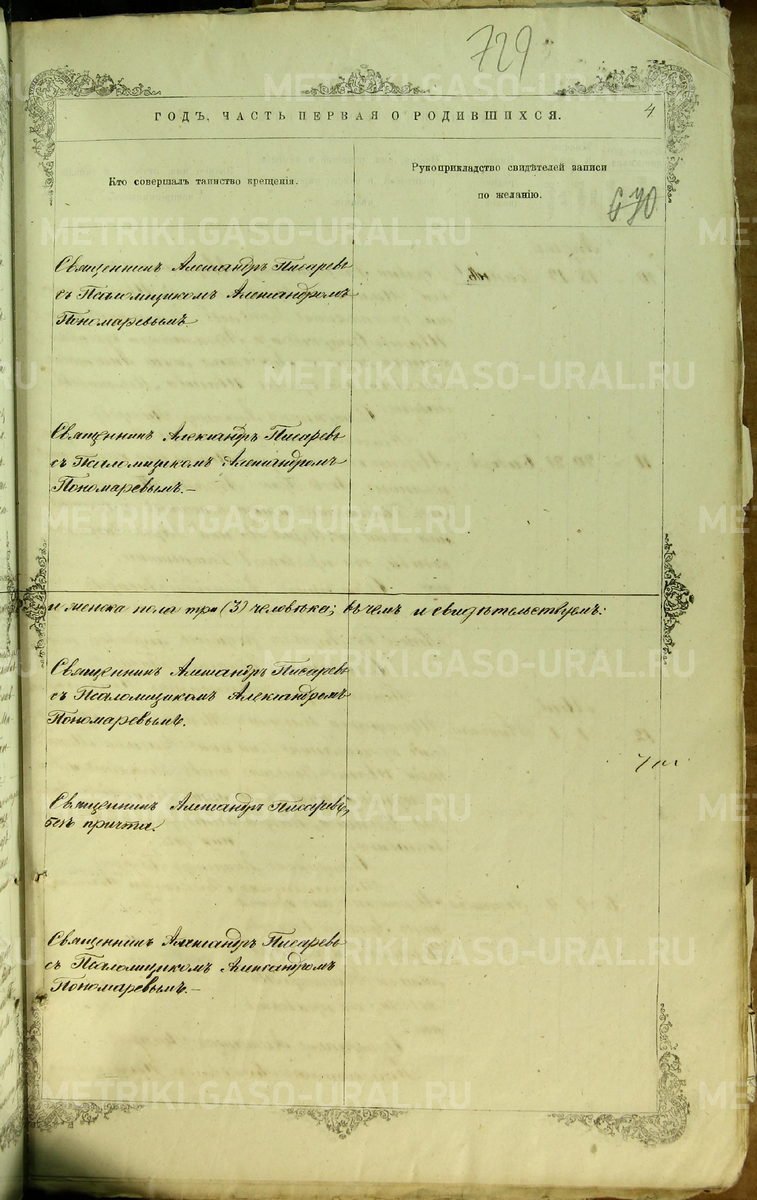 729
ГОДЪ, ЧАСТЬ ПЕРВАЯ О РОДИВШИХСЯ.
4
Кто совершалъ таинство крещенія.
Рукоприкладство свидѣтелей записи
по желанію.
Священникъ Александръ Писаревъ
съ Псаломщикомъ Александромъ
Пономаревымъ
Священникъ Александръ Писаревъ
съ Псаломщикомъ Александромъ
Пономаревымъ.—
и женска пола три (3) человѣка; въ чемъ и свидѣтельствуемъ:
Священникъ Александръ Писаревъ
съ Псаломщикомъ Александромъ
Пономаревымъ.
Священникъ Александръ Писаревъ,
безъ причта.
Священникъ Александръ Писаревъ
съ Псаломщикомъ Александромъ
Пономаревымъ.—
METRIKI.GASO-URAL.RU